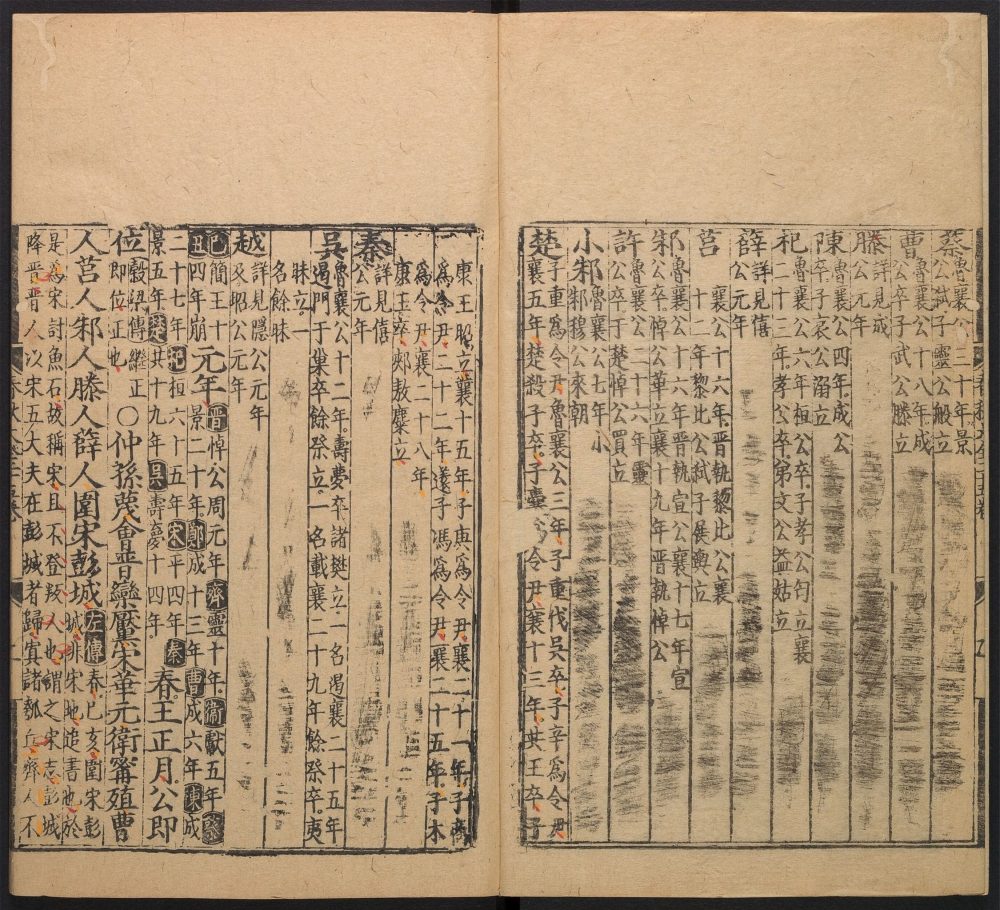 蔡魯襄公三十年景
公弑子靈公般立
曹魯襄公十八年成
公卒子武公滕立
滕詳見成
公元年
陳魯襄公四年成公
卒子哀公溺立
杞魯襄公六年桓公卒子孝公匄立襄
二十三年孝公卒弟文公益姑立
薛詳見僖
公元年
莒襄公十六年晋執黎比公襄
十一年黎比公弑子展輿立
邾魯襄公十六年晋執宣公襄十七年宣
公卒悼公華立襄十九年晋執悼公
許魯襄公二十六年靈
公卒于楚悼公買立
小邾魯襄公七年小
邾穆公來朝
楚子重爲令尹魯襄公三年子重伐吳卒子辛爲令尹
襄五年楚殺子辛子囊令尹襄十三年共王卒子
康王昭立襄十五年子庚爲令尹襄二十一年子南
爲令尹襄二十二年薳子馮爲令尹襄二十五年子木
爲令尹襄二十八年
康王卒郟敖麇立
秦詳見僖
公元年
吳魯襄公十二年壽夢卒諸樊立一名遏襄二十五年
遏門于巢卒餘祭立一名戴襄二十九年餘祭卒夷
昧立一
名餘昧
越詳見隱公元年
及昭公元年
己丑簡王十
四年崩
元年晋悼公周元年齊靈十年衛獻五年蔡
景二十年鄭成十三年曹成六年陳成
二十七年杞桓六十五年宋平四年秦
景五年楚共十九年吳壽夢十四年
春王正月公即
位穀梁傳繼正
即位正也
〇仲孫蔑會晋欒黶宋華元衛甯殖曹
人莒人邾人滕人薛人圍宋彭城左傳春己亥圍宋彭
城非宋地追書也於
是爲宋討魚石故稱宋且不登叛人也謂之宋志彭城
降晋晋人以宋五大夫在彭城者歸寘諸瓠丘齊人不